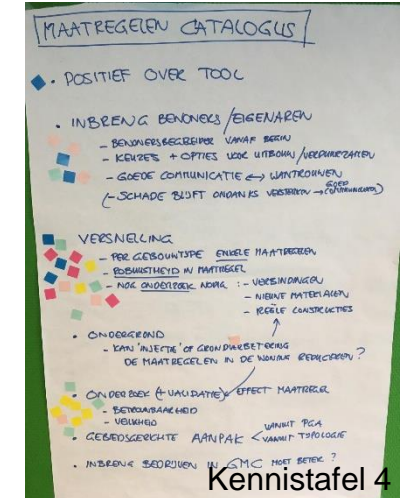 MAATREGELEN CATALOGUS
• POSITIEF OVER TOOL
• INBRENG BEWONERS/EIGENAREN
- BEWONERSBEGELEIDER VANAF BEGIN
- KEUZES + OPTIES VOOR UITBOUW/VERDUURZAMEN
- GOEDE COMMUNICATIE ↔ WANTROUWEN
(- SCHADE BLIJFT ONDANKS VERSTERKEN → GOED COMMUNICEREN)
VERSNELLING
- PER GEBOUWTYPE ENKELE MAATREGELEN
- ROBUUSTHEID IN MAATREGEL
- NOG ONDERZOEK NODIG : - VERBINDINGEN
- NIEUWE MATERIALEN
- REËLE CONSTRUCTIES
• ONDERGROND
- KAN 'INJECTIE' OF GRONDVERBETERING
DE MAATREGELEN IN DE WONING REDUCEREN?
• ONDERZOEK (+ VALIDATIE) EFFECT MAATREGEL
- BETROUWBAARHEID
- VEILIGHEID
• GEBIEDSGERICHTE AANPAK < VANUIT PGA
VANUIT TYPOLOGIE
• INBRENG BEDRIJVEN IN GMC MOET BETER ?
Kennistafel 4